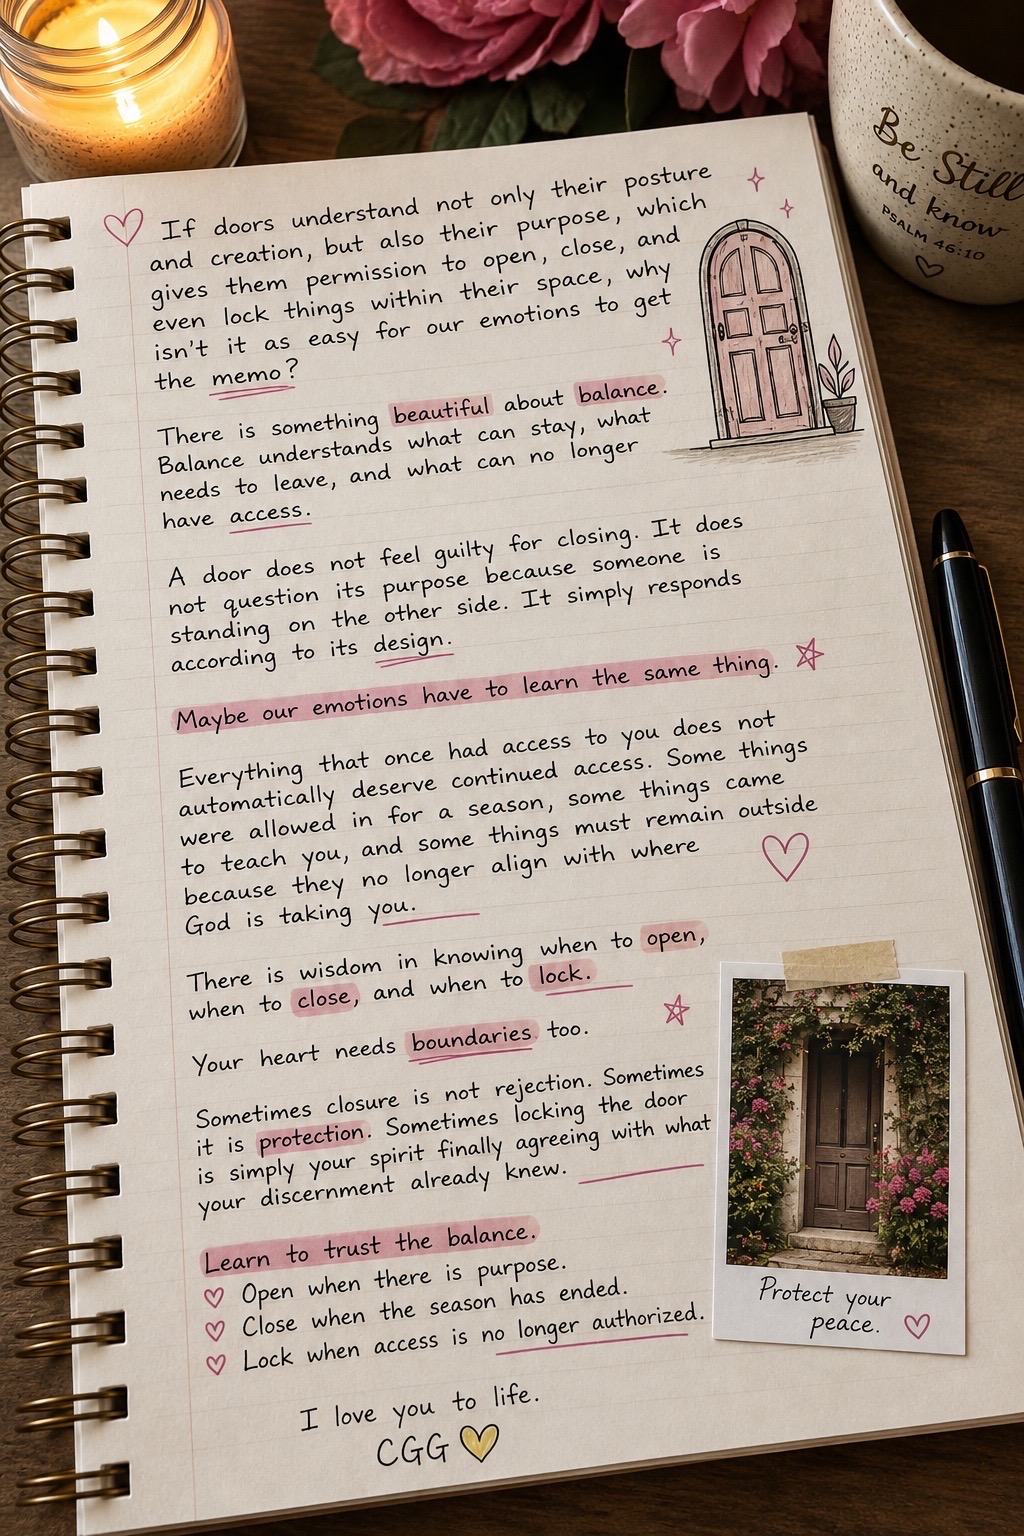 Be Still
and know
PSALM 46:10
If doors understand not only their posture
and creation, but also their purpose, which
gives them permission to open, close, and
even lock things within their space, why
isn't it as easy for our emotions to get
the memo?
There is something beautiful about balance.
Balance understands what can stay, what
needs to leave, and what can no longer
have access.
A door does not feel guilty for closing. It does
not question its purpose because someone is
standing on the other side. It simply responds
according to its design.
Maybe our emotions have to learn the same thing.
Everything that once had access to you does not
automatically deserve continued access. Some things
were allowed in for a season, some things came
to teach you, and some things must remain outside
because they no longer align with where
God is taking you.
There is wisdom in knowing when to open,
when to close, and when to lock.
Your heart needs boundaries too.
Sometimes closure is not rejection. Sometimes
it is protection. Sometimes locking the door
is simply your spirit finally agreeing with what
your discernment already knew.
Learn to trust the balance.
Open when there is purpose.
Close when the season has ended.
Lock when access is no longer authorized.
I love you to life.
CGG
Protect your
peace.